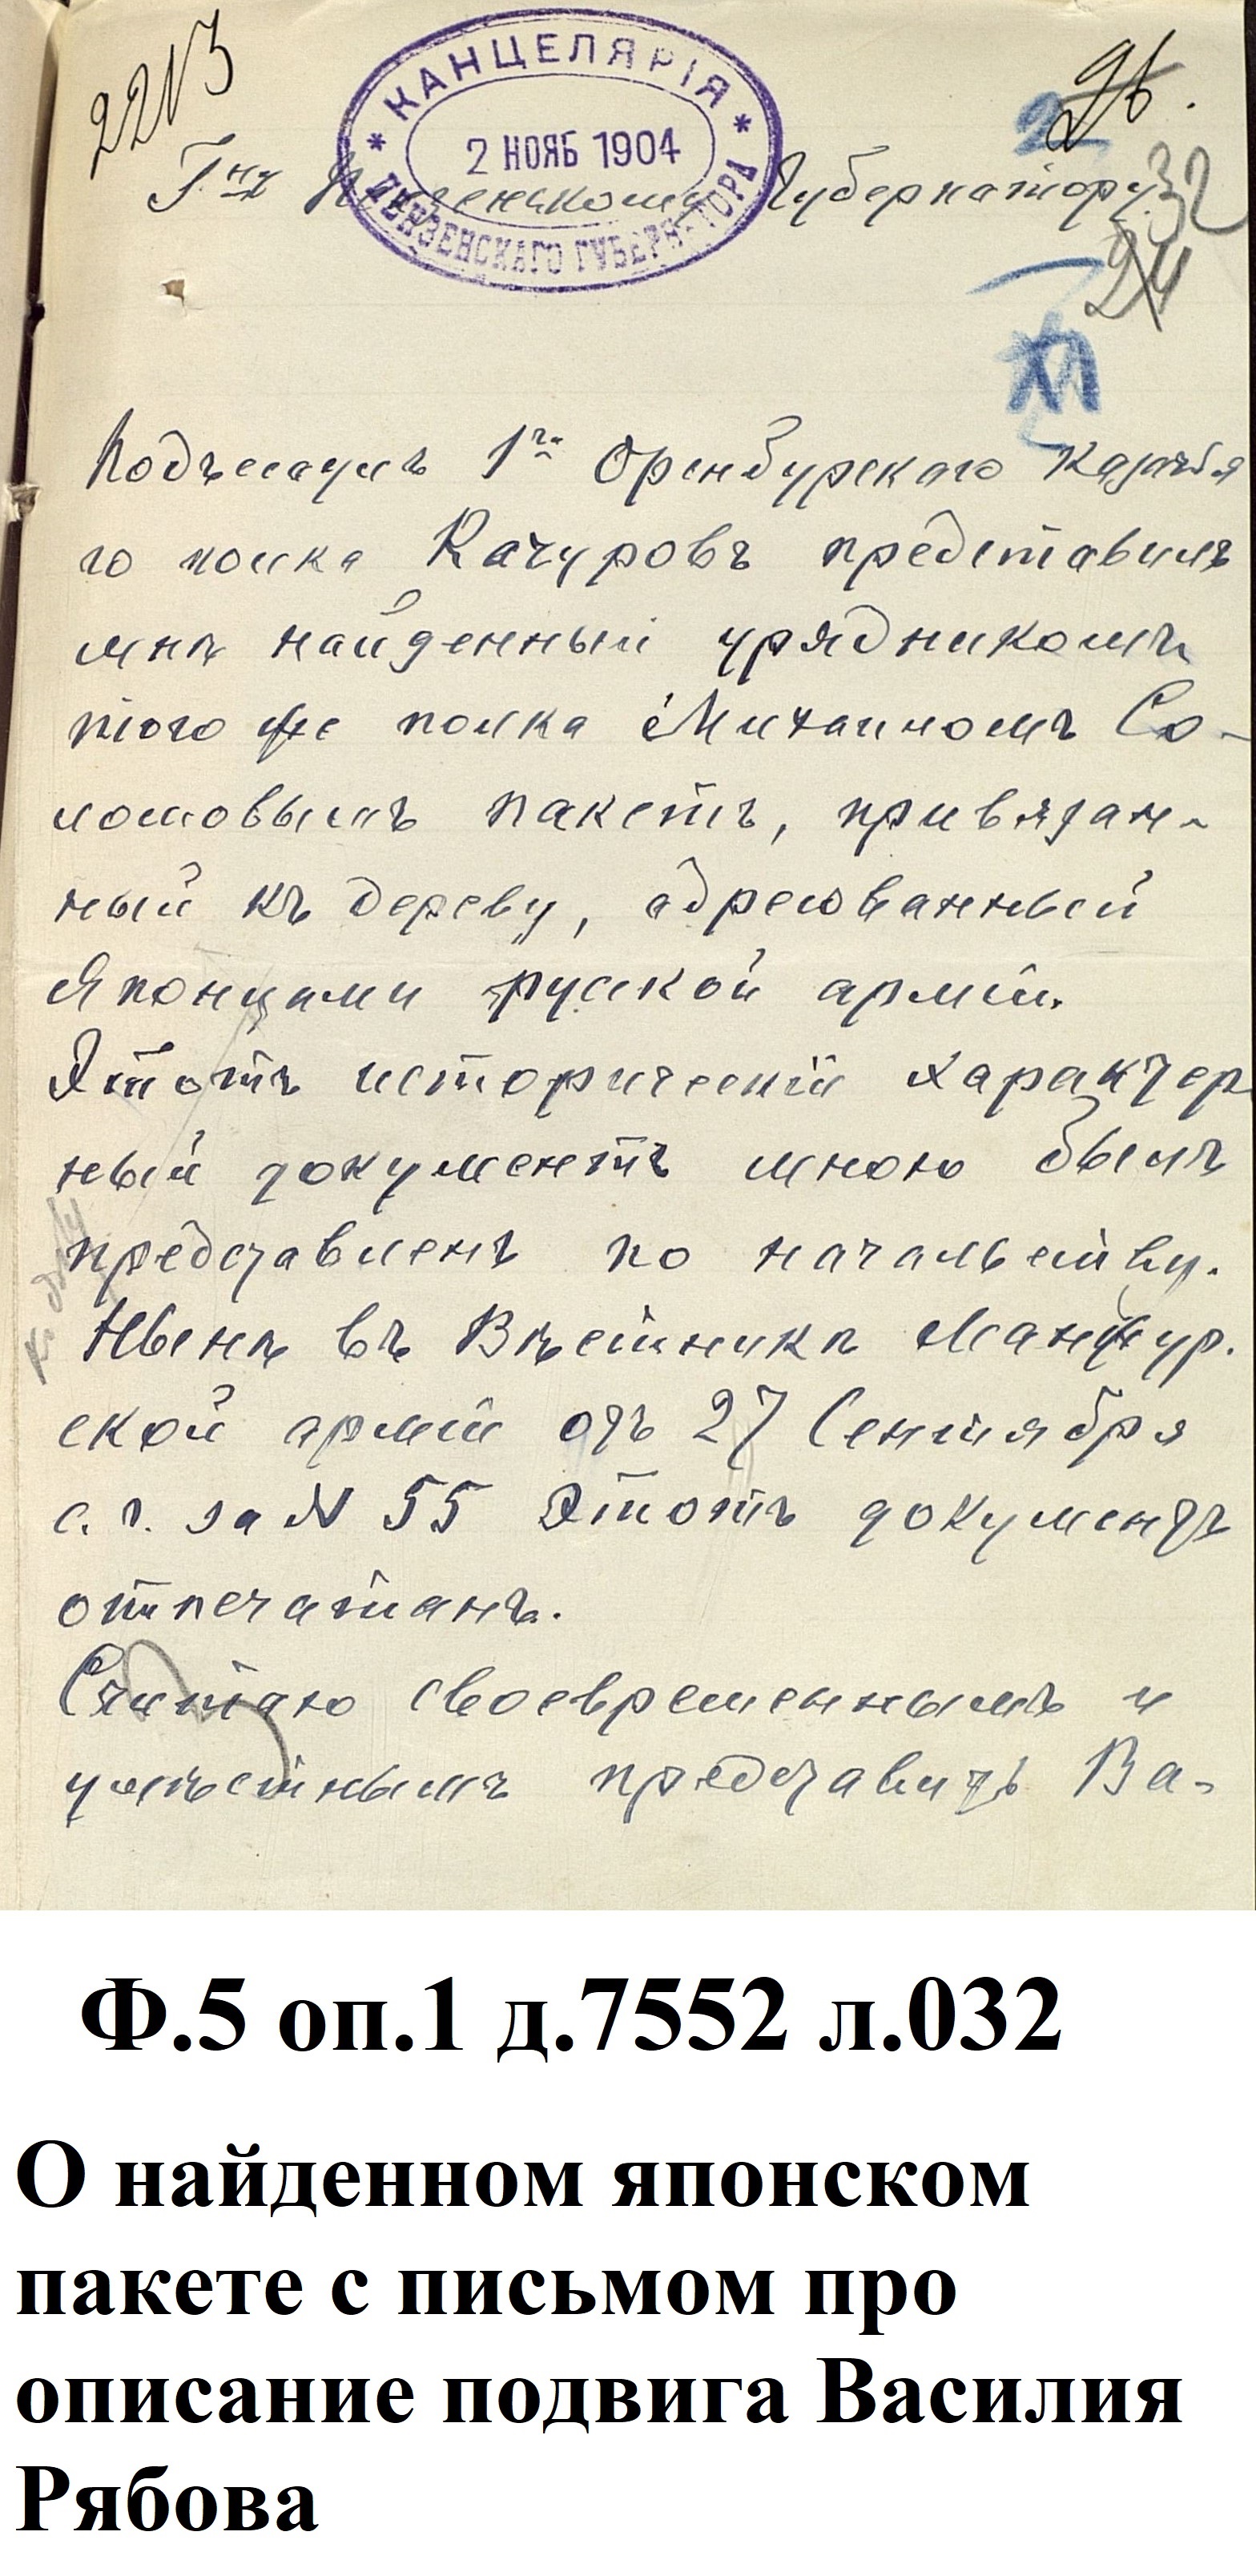 2213
КАНЦЕЛЯРІЯ
26.
2 НОЯБ 1904
2
ПЕНЗЕНСКАГО ГУБЕРНАТОРА
Г.ну Пензенскому Губернатору.
32
24
Подъесаулъ 1го Оренбурскаго казачья
го полка Качуровъ представилъ
мнѣ найденный урядникомъ
того же полка Михаиломъ Со-
ломовымъ пакетъ, привязан-
ный къ дереву, адресованный
Японцами русской арміи.
Этотъ историческій характер
ный документъ мною былъ
представленъ по начальству.
Нынѣ въ Вѣстникѣ Манжур.
ской арміи отъ 27 Сентября
с. г. за N 55 Этотъ документъ
отпечатанъ.
Считаю своевременнымъ и
умѣстнымъ представить Ва-
Ф.5 оп.1 д.7552 л.032
О найденном японском
пакете с письмом про
описание подвига Василия
Рябова